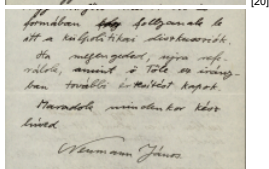 formában folyjanak le
itt a külpolitikai diszkussziók.
Ha megengeded, újra refe-
rálok, amint ő Tőle ez irány-
ban további értesítést kapok.
Maradok mindenkor kész
híved
Neumann János
[20]